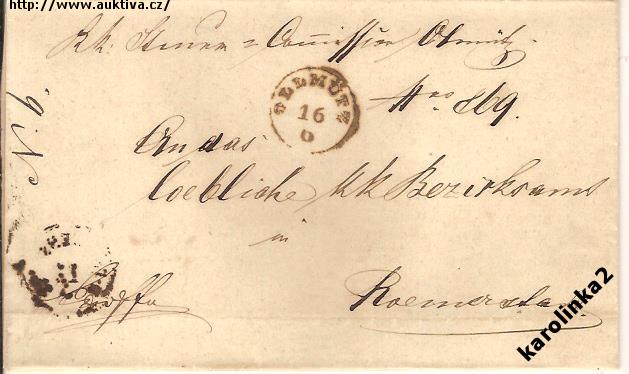 http://www.auktiva.cz/
KK: Steuer = Commission Olmütz
Nro 869.
OLLMÜTZ
16
An das
loebliche KK Bezirksamt
in
Roemerstadt
karolinka2